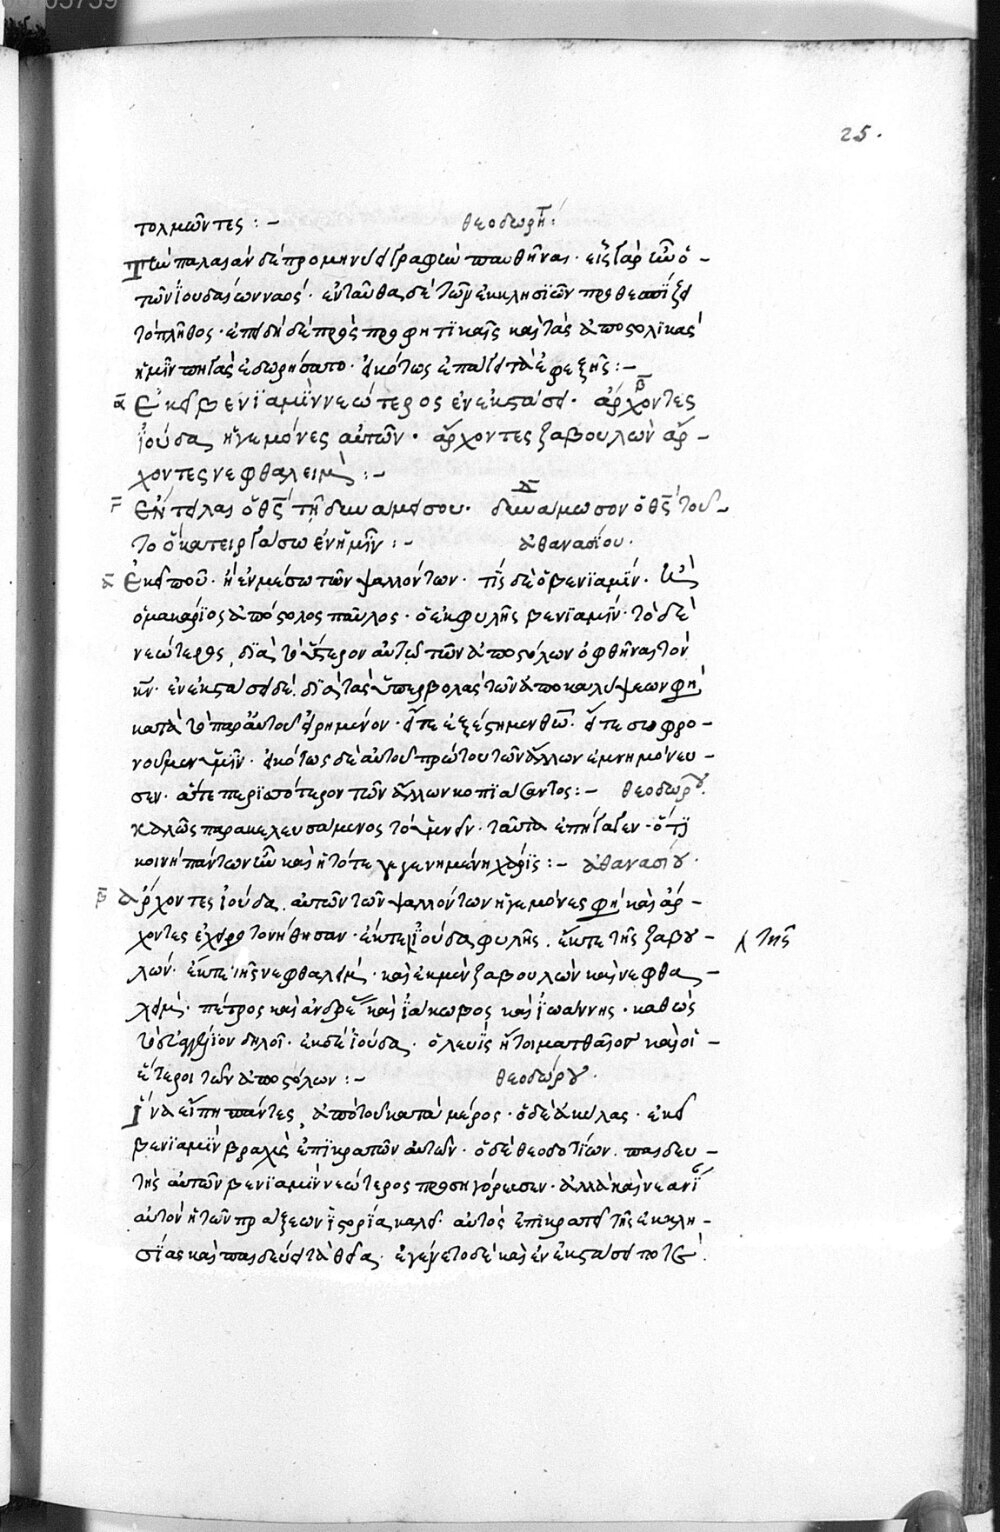 25.
τολμῶντες :- θεοδωρήτ:
Τὴν παλαιὰν δὲ προμηνύει γραφὴν παυθῆναι· εἷς γὰρ ἦν ὁ
τῶν ϊουδαίων ναός· ἐνταῦθα δὲ τῶν ἐκκλησϊῶν προθεσπίζει
τὸ πλῆθος· ἐπειδὴ δὲ πρὸς προφητϊκαῖς καὶ τὰς ἀποστολϊκὰς
ἡμῖν πηγὰς ἐδωρήσατο· εἰκότως ἐπάγει τὰ ἐφεξῆς :-
α Ἐκεῖ βενϊαμὶν νεώτερος ἐν ἐκστάσει· β ἄρχοντες
ϊούδα ἡγεμόνες αὐτῶν· ἄρχοντες ζαβουλὼν ἄρ-
χοντες νεφθαλείμ :-
γ Ἔντειλαι ὁ θς τῇ δυνάμει σου· δ δυνάμωσον ὁ θς τοῦ-
το ὃ κατειργάσω ἐν ἡμῖν :- ἀθανασίου·
α Ἐκεῖ ποῦ· ἢ ἐν μέσω τῶν ψαλλόντων· τίς δὲ ὁ βενϊαμίν·
ὁ μακάρϊος ἀπόστολος παῦλος· ὁ ἐκ φυλῆς βενϊαμίν· τὸ δὲ
νεώτερος, δϊὰ τὸ ὕστερον αὐτὸν τῶν ἀποστόλων ὀφθῆναι τὸν
κν· ἐν ἐκστάσει δὲ· δϊὰ τὰς ὑπερβολὰς τῶν ἀποκαλύψεων φη
κατὰ τὸ παρ' αὐτοῦ εἰρημένον· εἴτε ἐξέστημεν θω· εἴτε σωφρο-
νοῦμεν ὑμῖν· εἰκότως δὲ αὐτοῦ πρώτου τῶν ἄλλων ἐμνημόνευ-
σεν· ἅτε περϊσσότερον τῶν ἄλλων κοπϊάσαντος :- θεοδώρου·
καλῶς παρακελευσάμενος τὸ ὑμνεῖν· ταῦτα ἐπήγαγεν· ὅτϊ
κοινὴ πάντων ἦν καὶ ἡ τότε γεγενημένη χάρϊς :- ἀθανασίου·
β ἄρχοντες ϊούδα αὐτῶν τῶν ψαλλόντων ἡγεμόνες φη καὶ ἄρ-
χοντες ἐχειροτονήθησαν· ἔκ τε ϊούδα φυλῆς· ἔκ τε τῆς ζαβου- / τῆς
λών· ἔκ τε τῆς νεφθαλείμ· καὶ ἐκ μὲν ζαβουλὼν καὶ νεφθα-
λείμ· πέτρος καὶ ἀνδρέας καὶ ϊάκωβος καὶ ϊωάννης· καθὼς
τὸ εὐαγγέλιον δηλοῖ· ἐκ δὲ ϊούδα· ὁ λευῒς ἤτοι ματθαῖος καὶ οἱ
ἕτεροι τῶν ἀποστόλων :- θεοδώρου·
Ἵνα εἴπη πάντες, ἀπὸ τοῦ κατὰ μέρος· ὁ δὲ ἀκύλας· ἐκεῖ
βενϊαμῒν βραχὺς ἐπϊκρατῶν αὐτῶν· ὁ δὲ θεοδοτίων· παιδευ-
τὴς αὐτῶν βενϊαμὶν νεώτερος προσηγόρευσεν· ἀλλὰ καὶ νεανϊ
αὐτὸν ἡ τῶν πράξεων ϊστορία καλεῖ· αὐτὸς ἐπικρατεῖ τῆς ἐκκλη-
σϊας καὶ παιδεύει τὰ θεῖα· ἐγένετο δὲ καὶ ἐν ἐκστάσει ποτὲ·